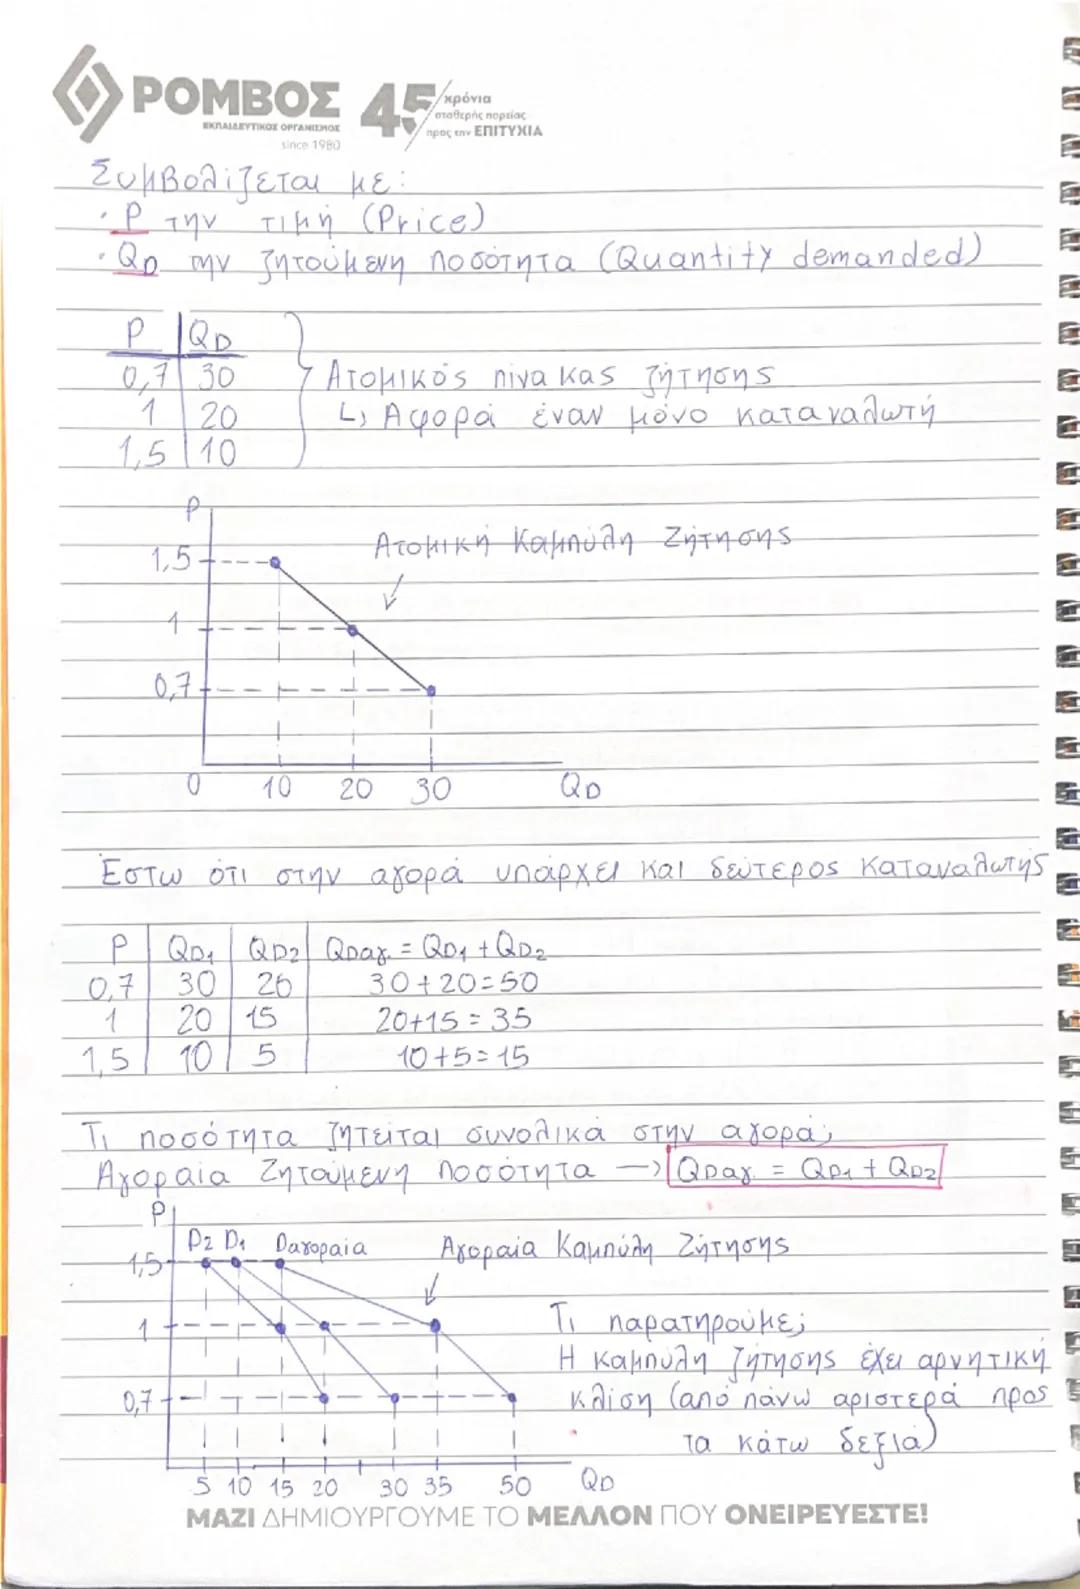 ΡΟΜΒΟΣ
ΕΚΠΑΙΔΕΥΤΙΚΟΣ ΟΡΓΑΝΙΣΜΟΣ
since 1980
45 χρόνια
σταθερής πορείας
προς την ΕΠΙΤΥΧΙΑ
Συμβολίζεται με:
· P την τιμή (Price)
· QD την ζητούμενη ποσότητα (Quantity demanded)
P QD
0,7 30
1 20
1,5 10
Ατομικός πίνακας ζήτησης
↳ Αφορά έναν μόνο καταναλωτή
P
Ατομική Καμπύλη Ζήτησης
1,5
1
0,7
0 10 20 30 QD
Έστω ότι στην αγορά υπάρχει και δεύτερος καταναλωτής
P QD1 QD2 QDαγ. = QD1 + QD2
0,7 30 20 30+20=50
1 20 15 20+15=35
1,5 10 5 10+5=15
Τι ποσότητα ζητείται συνολικά στην αγορά;
Αγοραία Ζητούμενη Ποσότητα → QDαγ. = QD1 + QD2
P
D2 D1 Dαγοραία Αγοραία Καμπύλη Ζήτησης
1,5
1
0,7
Τι παρατηρούμε;
Η καμπύλη ζήτησης έχει αρνητική
κλίση (από πάνω αριστερά προς
τα κάτω δεξιά)
5 10 15 20 30 35 50 QD
ΜΑΖΙ ΔΗΜΙΟΥΡΓΟΥΜΕ ΤΟ ΜΕΛΛΟΝ ΠΟΥ ΟΝΕΙΡΕΥΕΣΤΕ!